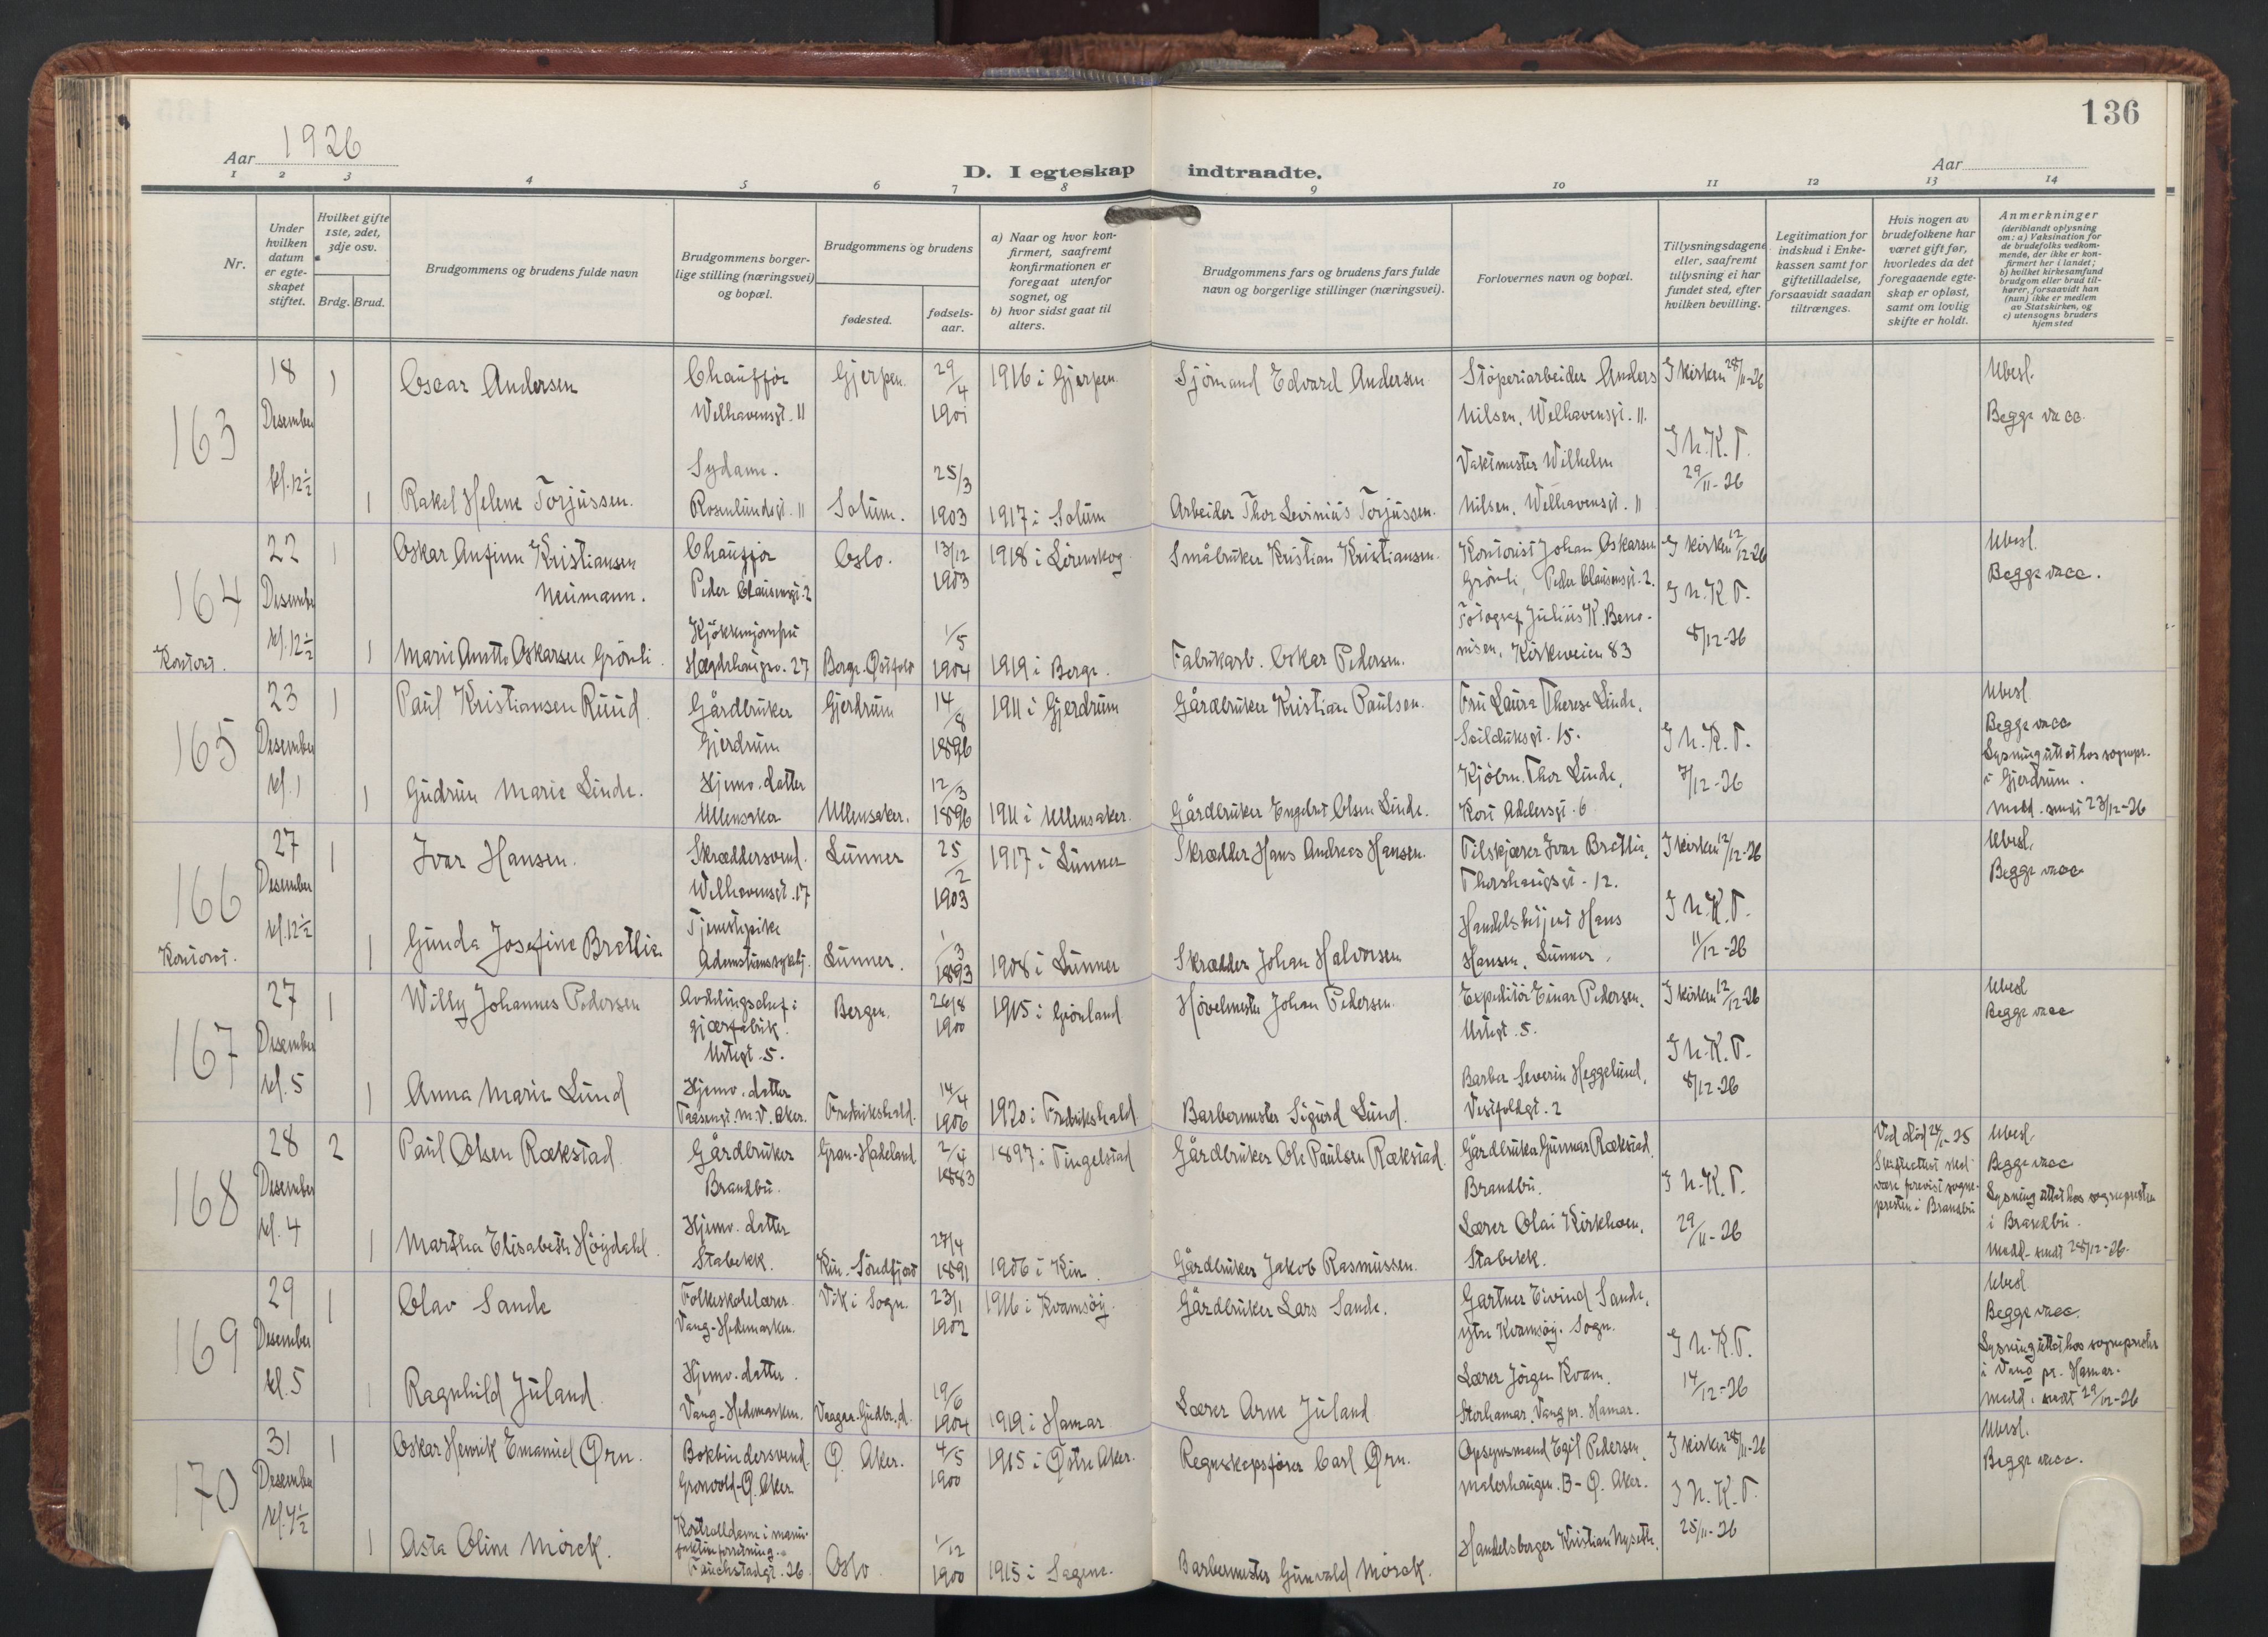 136
Aar 1926
D. I egteskap indtraadte.
Aar
1 2 3 4 5 6 7 8 9 10 11 12 13 14
Nr.
Under hvilken datum er egte-skapet stiftet.
Hvilket gifte 1ste, 2det, 3dje osv.
Brdg. Brud.
Brudgommens og brudens fulde navn
Brudgommens borger-lige stilling (næringsvei) og bopæl.
Brudgommens og brudens
fødested.
fødsels-aar.
a) Naar og hvor kon-firmert, saafremt konfirmationen er foregaat utenfor sognet, og
b) hvor sidst gaat til alters.
Brudgommens fars og brudens fars fulde navn og borgerlige stillinger (næringsvei).
Forlovernes navn og bopæl.
Tillysningsdagene eller, saafremt tillysning ei har fundet sted, efter hvilken bevilling.
Legitimation for indskud i Enke-kassen samt for giftetilladelse, forsaavidt saadan tiltrænges.
Hvis nogen av brudefolkene har været gift før, hvorledes da det foregaaende egte-skap er opløst, samt om lovlig skifte er holdt.
Anmerkninger (deriblandt oplysning om: a) Vaksination for de brudefolks vedkom-mende, der ikke er kon-firmert her i landet; b) hvilket kirkesamfund brudgom eller brud til-hører, forsaavidt han (hun) ikke er medlem av Statskirken, og c) utensogns bruders hjemsted
163
18 Desember kl. 12½
1 Oscar Andersen
Chauffør Welhavensgt. 11
Gjerpen. 29/4 1901
1916 i Gjerpen
Sjömand Edvard Andersen
Stöperiarbeider Anders Nilsen, Welhavensgt. 11.
I kirken 28/11-26
Ubesl.
Begge vacc.
1 Rakel Helene Torjussen.
Sydame. Rosenlundsgt. 11
Solum. 25/3 1903
1917 i Solum
Arbeider Thor Levinius Torjussen.
Vaktmester Wilhelm Nilsen, Welhavensgt. 11
I h. K. T. 29/11-26
164
Kontoret.
22 Desember kl. 12½
1 Oskar Anfinn Kristiansen Neumann.
Chauffør Peder Clausensgt. 2
Oslo. 13/12 1903
1918 i Lörenskog
Småbruker Kristian Kristiansen.
Kontorist Johan Oskarsen Grönli, Peder Clausensgt. 2.
I kirken 12/12-26
Ubesl.
Begge vacc.
1 Marie Anette Oskarsen Grönli
Kjökkenjomfru Hægdehaugsv. 27
Borge Østfold 1/5 1904
1919 i Borge.
Fabrikarb. Oskar Pedersen.
Fotograf Julius K. Beronisen, Kirkeveien 83
I h. K. T. 8/12-26
165
23 Desember kl. 1
1 Paul Kristiansen Ruud
Gårdbruker Gjerdrum
Gjerdrum 14/8 1896
1911 i Gjerdrum
Gårdbruker Kristian Paulsen.
Fru Laura Therese Linde, Seilduksgt. 15.
I h. K. T. 7/12-26
Ubesl
Begge vacc
Lysning uttat hos sognepr. i Gjerdrum.
Medd. sendt 23/12-26
1 Gudrun Marie Linde.
Hjemv. datter Ullensaker
Ullensaker. 12/3 1896
1911 i Ullensaker.
Gårdbruker Engebret Olsen Linde.
Kjöbm. Thor Linde, Kort Adelersgt. 6
166
Kontoret.
27 Desember kl. 12½
1 Ivar Hansen.
Skræddersvend. Welhavensgt. 17
Lunner 25/2 1903
1917 i Lunner
Skrædder Hans Andreas Hansen.
Tilskjærer Ivar Brætlia, Thorshaugsgt. 12.
I kirken 12/12-26
Ubesl.
Begge vacc
1 Gunda Josefine Brætlie
Tjenestepike
Lunner. 1/3 1893
1908 i Lunner
Skrædder Johan Halvorsen
Handelsbetjent Hans Hansen, Lunner.
I h. K. T. 11/12-26
167
27 Desember kl. 5
1 Willy Johannes Pedersen
Avdelingschef i gjærfabrik. Urtegt. 5.
Bergen. 26/8 1900
1915 i Grönland
Hövelmester Johan Pedersen.
Expeditör Einar Pedersen, Urtegt. 5.
I kirken 12/12-26
Ubesl
Begge vacc
1 Anna Marie Lund
Hjemv. datter Taasengt. m. V. Aker.
Fredrikshald. 14/4 1906
1920 i Fredrikshald
Barbermester Sigurd Lund.
Barber Severin Heggelund, Vestfoldgt. 2
I h. K. T. 8/12-26
168
28 Desember kl. 4
2 Paul Olsen Rækstad
Gårdbruker Brandbu.
Gran-Hadeland 2/4 1883
1897 i Tingelstad
Gårdbruker Ole Paulsen Rækstad.
Gårdbruker Gunnar Rækstad, Brandbu.
I h. K. T. 29/11-26
Ved död 24/1-25
Skifteattest skal være forevist sogne-presten i Brandbu
Ubesl.
Begge vacc
Lysning uttat hos sognepresten i Brandbu.
Medd. sendt 28/12-26.
1 Martha Elisabeth Höydahl.
Hjemv. datter Stabekk.
Kin-Söndfjord 27/4 1891
1906 i Kin.
Gårdbruker Jakob Rasmussen.
Lærer Olai Kirkhoen, Stabekk.
169
29 Desember kl. 5
1 Olav Sande
Folkeskolelærer. Vang-Hedemarken.
Vik i Sogn. 23/1 1902
1916 i Kvamsöy.
Gårdbruker Lars Sande.
Gartner Eivind Sande, ytre Kvamsöy. Sogn.
I h. K. T. 14/12-26
Ubesl
Begge vacc.
Lysning uttat hos sognepresten i Vang pr. Hamar.
Medd. sendt 29/12-26
1 Ragnhild Juland
Hjemv. datter. Vang-Hedemarken.
Vaage-Gudbr.d. 19/6 1904
1919 i Hamar
Lærer Arne Juland
Lærer Jörgen Kvam, Storhamar, Vang pr. Hamar.
170
31 Desember kl. 4½
1 Oskar Henrik Emanuel Ørn.
Bokbindersvend. Gronvold-Ø. Aker
Ø. Aker. 4/5 1900
1915 i Østre Aker.
Regnskapsförer Carl Ørn.
Opsynsmand Egil Pedersen, Malerhaugen. B-Ø. Aker.
I kirken 28/11-26
Ubesl.
Begge vacc.
1 Asta Oline Mörck.
Kontrolldame i manu-fakturforretning. Fauchaldsgt. 26
Oslo. 1/12 1900
1915 i Sagene.
Barbermester Gunvald Mörck.
Handelsborger Kristian Nyseth.
I h. K. T. 25/11-26